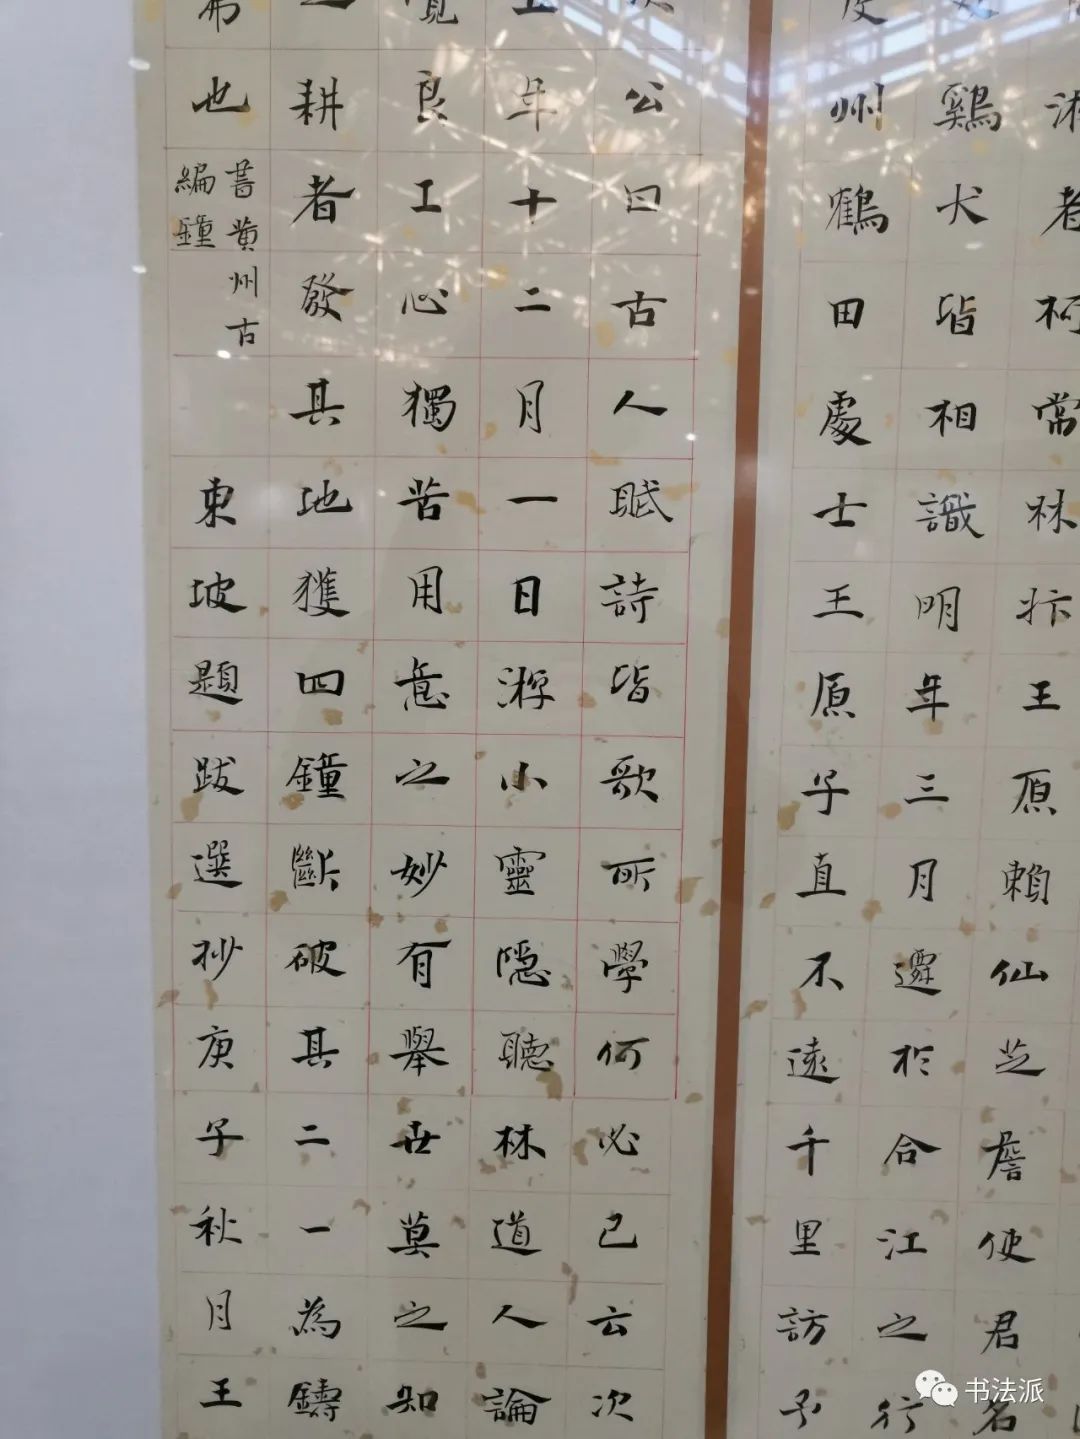 者柯常林抃王原賴仙芝詹使君名
鷄犬皆相識明年三月遷於合江之行
州鶴田處士王原子直不遠千里訪予
公曰古人賦詩皆歌所學何必已云次
年十二月一日游小靈隱聽林道人論
良工心獨苦用意之妙有舉世莫之知
耕者發其地獲四鐘斷破其二一為鑄
也
書黃州古
編鐘
東坡題跋選抄庚子秋月王
书法派